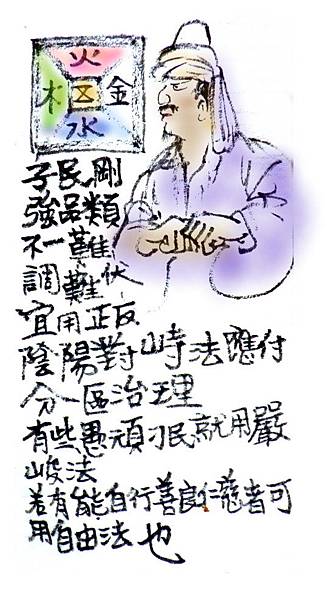 火
木区金
水
子民剛
強品類
不一難
調難伏
宜用正反
陰陽對峙法應付
分區治理
有些愚頑刁民就用嚴
峻法
若有能自行善良仁慈者可
用自由法也